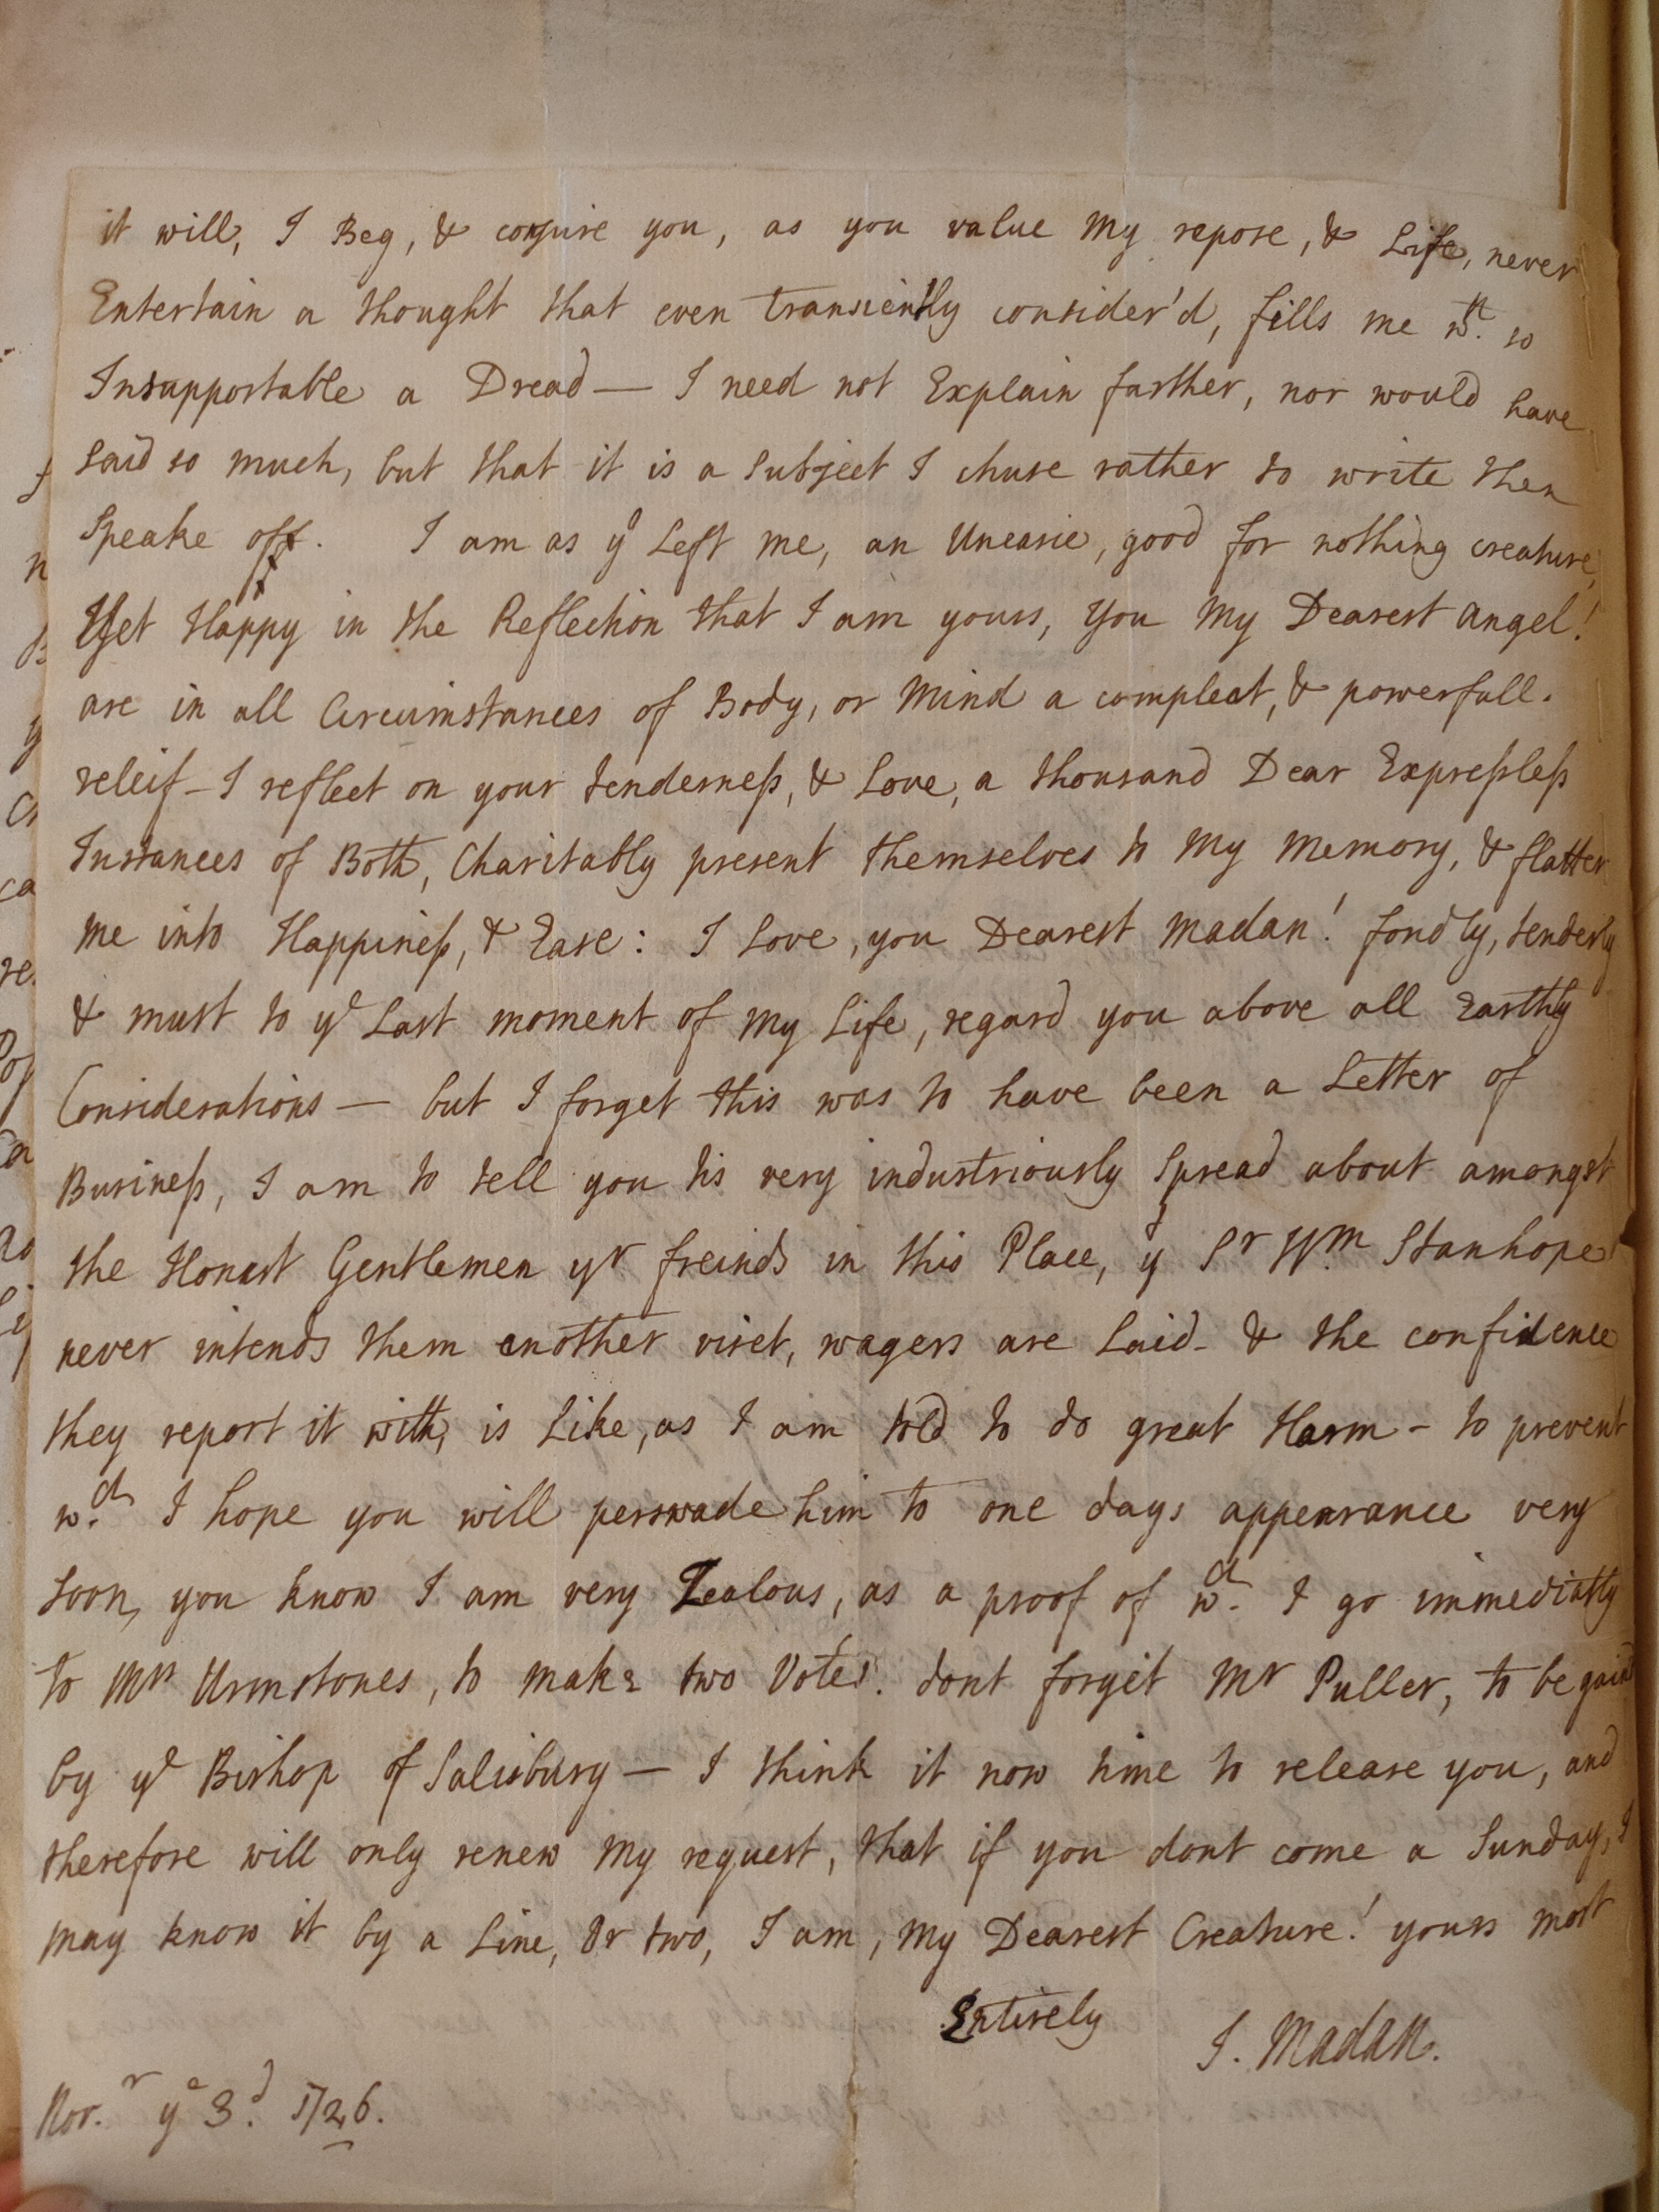 it will, I Beg, & conjure you, as you value my repose, & Life, never
Entertain a thought that even transiently consider'd, fills me wt. so
Insupportable a Dread — I need not Explain farther, nor would have
said so much, but that it is a Subject I chuse rather to write then
speake off. I am as yu Left me, an Uneasie, good for nothing creature,
Yet Happy in the Reflection that I am yours, you my Dearest Angel!
are in all Circumstances of Body, or Mind a compleat, & powerfull.
releif – I reflect on your tenderness, & Love, a thousand Dear Expressless
Instances of Both, Charitably present themselves to my memory, & flatter
me into Happiness, & Ease: I Love, you Dearest Madan! fondly, tenderly
& must to ye Last moment of my Life, regard you above all Earthly
Considerations — but I forget this was to have been a Letter of
Business, I am to tell you tis very industriously spread about amongst
the Honest Gentlemen yr freinds in this Place, yt Sr Wm. Stanhope
never intends them another viset, wagers are Laid – & the confidence
they report it with, is Like, as I am told to do great Harm – to prevent
wch. I hope you will perswade him to one days appearance very
soon, you know I am very Zealous, as a proof of wch. I go immediatly
to Mrs Urmstones, to make two Votes. dont forget Mr Puller, to be gaind
by ye Bishop of Salisbury — I think it now time to release you, and
therefore will only renew my request, that if you dont come a Sunday, I
may know it by a Line, Or two, I am, my Dearest Creature! yours most
Entirely J. Madan.
Nov.r ye 3.d 1726.